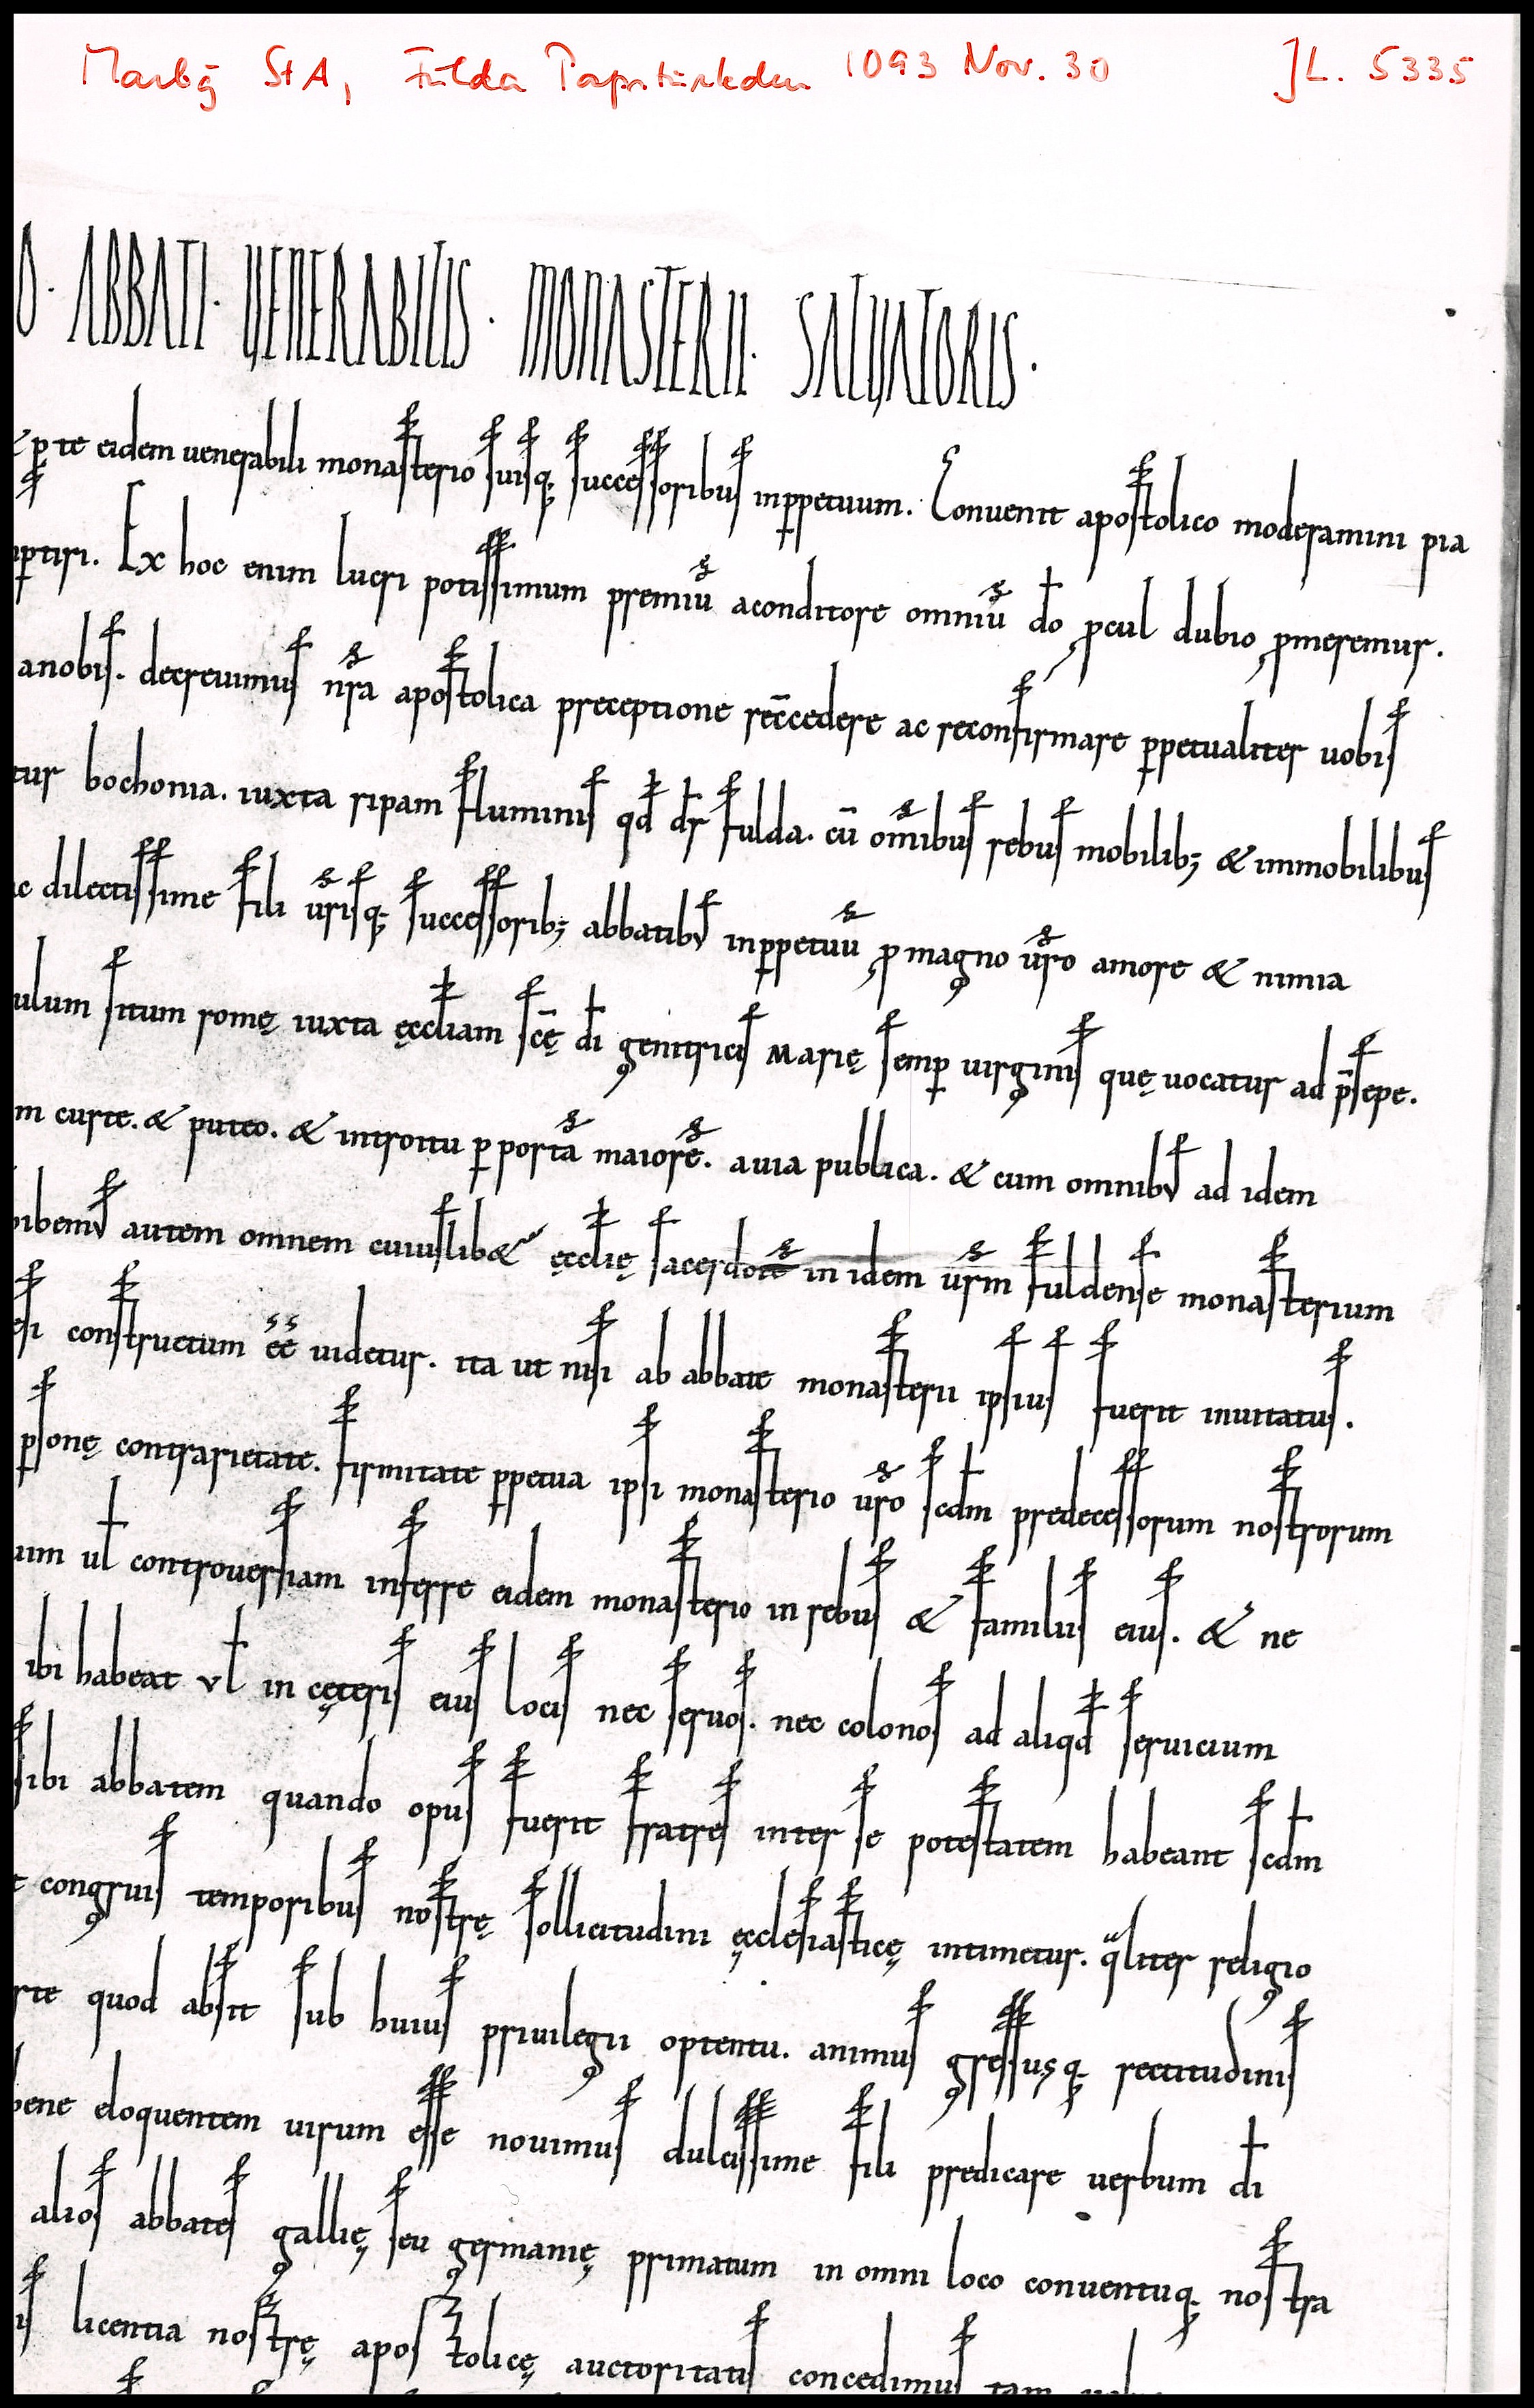 Marbg StA, Fulda Papsturkden 1093 Nov. 30 JL. 5335
O · ABBATI · VENERABILIS · MONASTERII · SALVATORIS ·
& p te eidem uenerabili monasterio suisq; successoribus inppetuum. Conuenit apostolico moderamini pia
ptiri. Ex hoc enim lucri potissimum premiū aconditore omniū do pcul dubio pmeremur.
anobis. decreuimus nr̄a apostolica preceptione rec̄cedere ac reconfirmare ppetualiter uobis
tur bochonia. iuxta ripam fluminis qd dr fulda. cū om̄ibus rebus mobilib; & immobilibus
c dilectissime fili ur̄isq; successorib; abbatibus inppetuū pmagno ur̄o amore & nimia
ulum situm romę iuxta ęccliam scę̄ di genitricis Marię semp uirginis quę uocatur ad p̄sepe.
m curte. & puteo. & introitu p portā maiorē. auia publica. & cum omnibus ad idem
bibemus autem omnem cuiuslib& ęcclię sacerdotē in idem ur̄m fuldense monasterium
esi constructum ee̅ uidetur. ita ut nisi ab abbate monasterii ipsius fuerit inuitatus.
psonę contrarietate. firmitate ppetua ipsi monasterio ur̄o scdm predecessorum nostrorum
um ul controuersiam inferre eidem monasterio in rebus & familiis eius. & ne
ibi habeat vl in cęteris eius locis nec seruos. nec colonos ad aliqd seruicium
sibi abbatem quando opus fuerit fratres inter se potestatem habeant scdm
congruis temporibus nostrę sollicitudini ęcclesiasticę intimetur. qualiter religio
rte quod absit sub huius priuilegii optentu. animus gressusq; rectitudinis
bene eloquentem uirum esse nouimus dulcissime fili predicare uerbum di
alios abbates gallię seu germanię primatum in omni loco conuentuq; nostra
licentia nostrę apostolicę auctoritatis concedimus tam